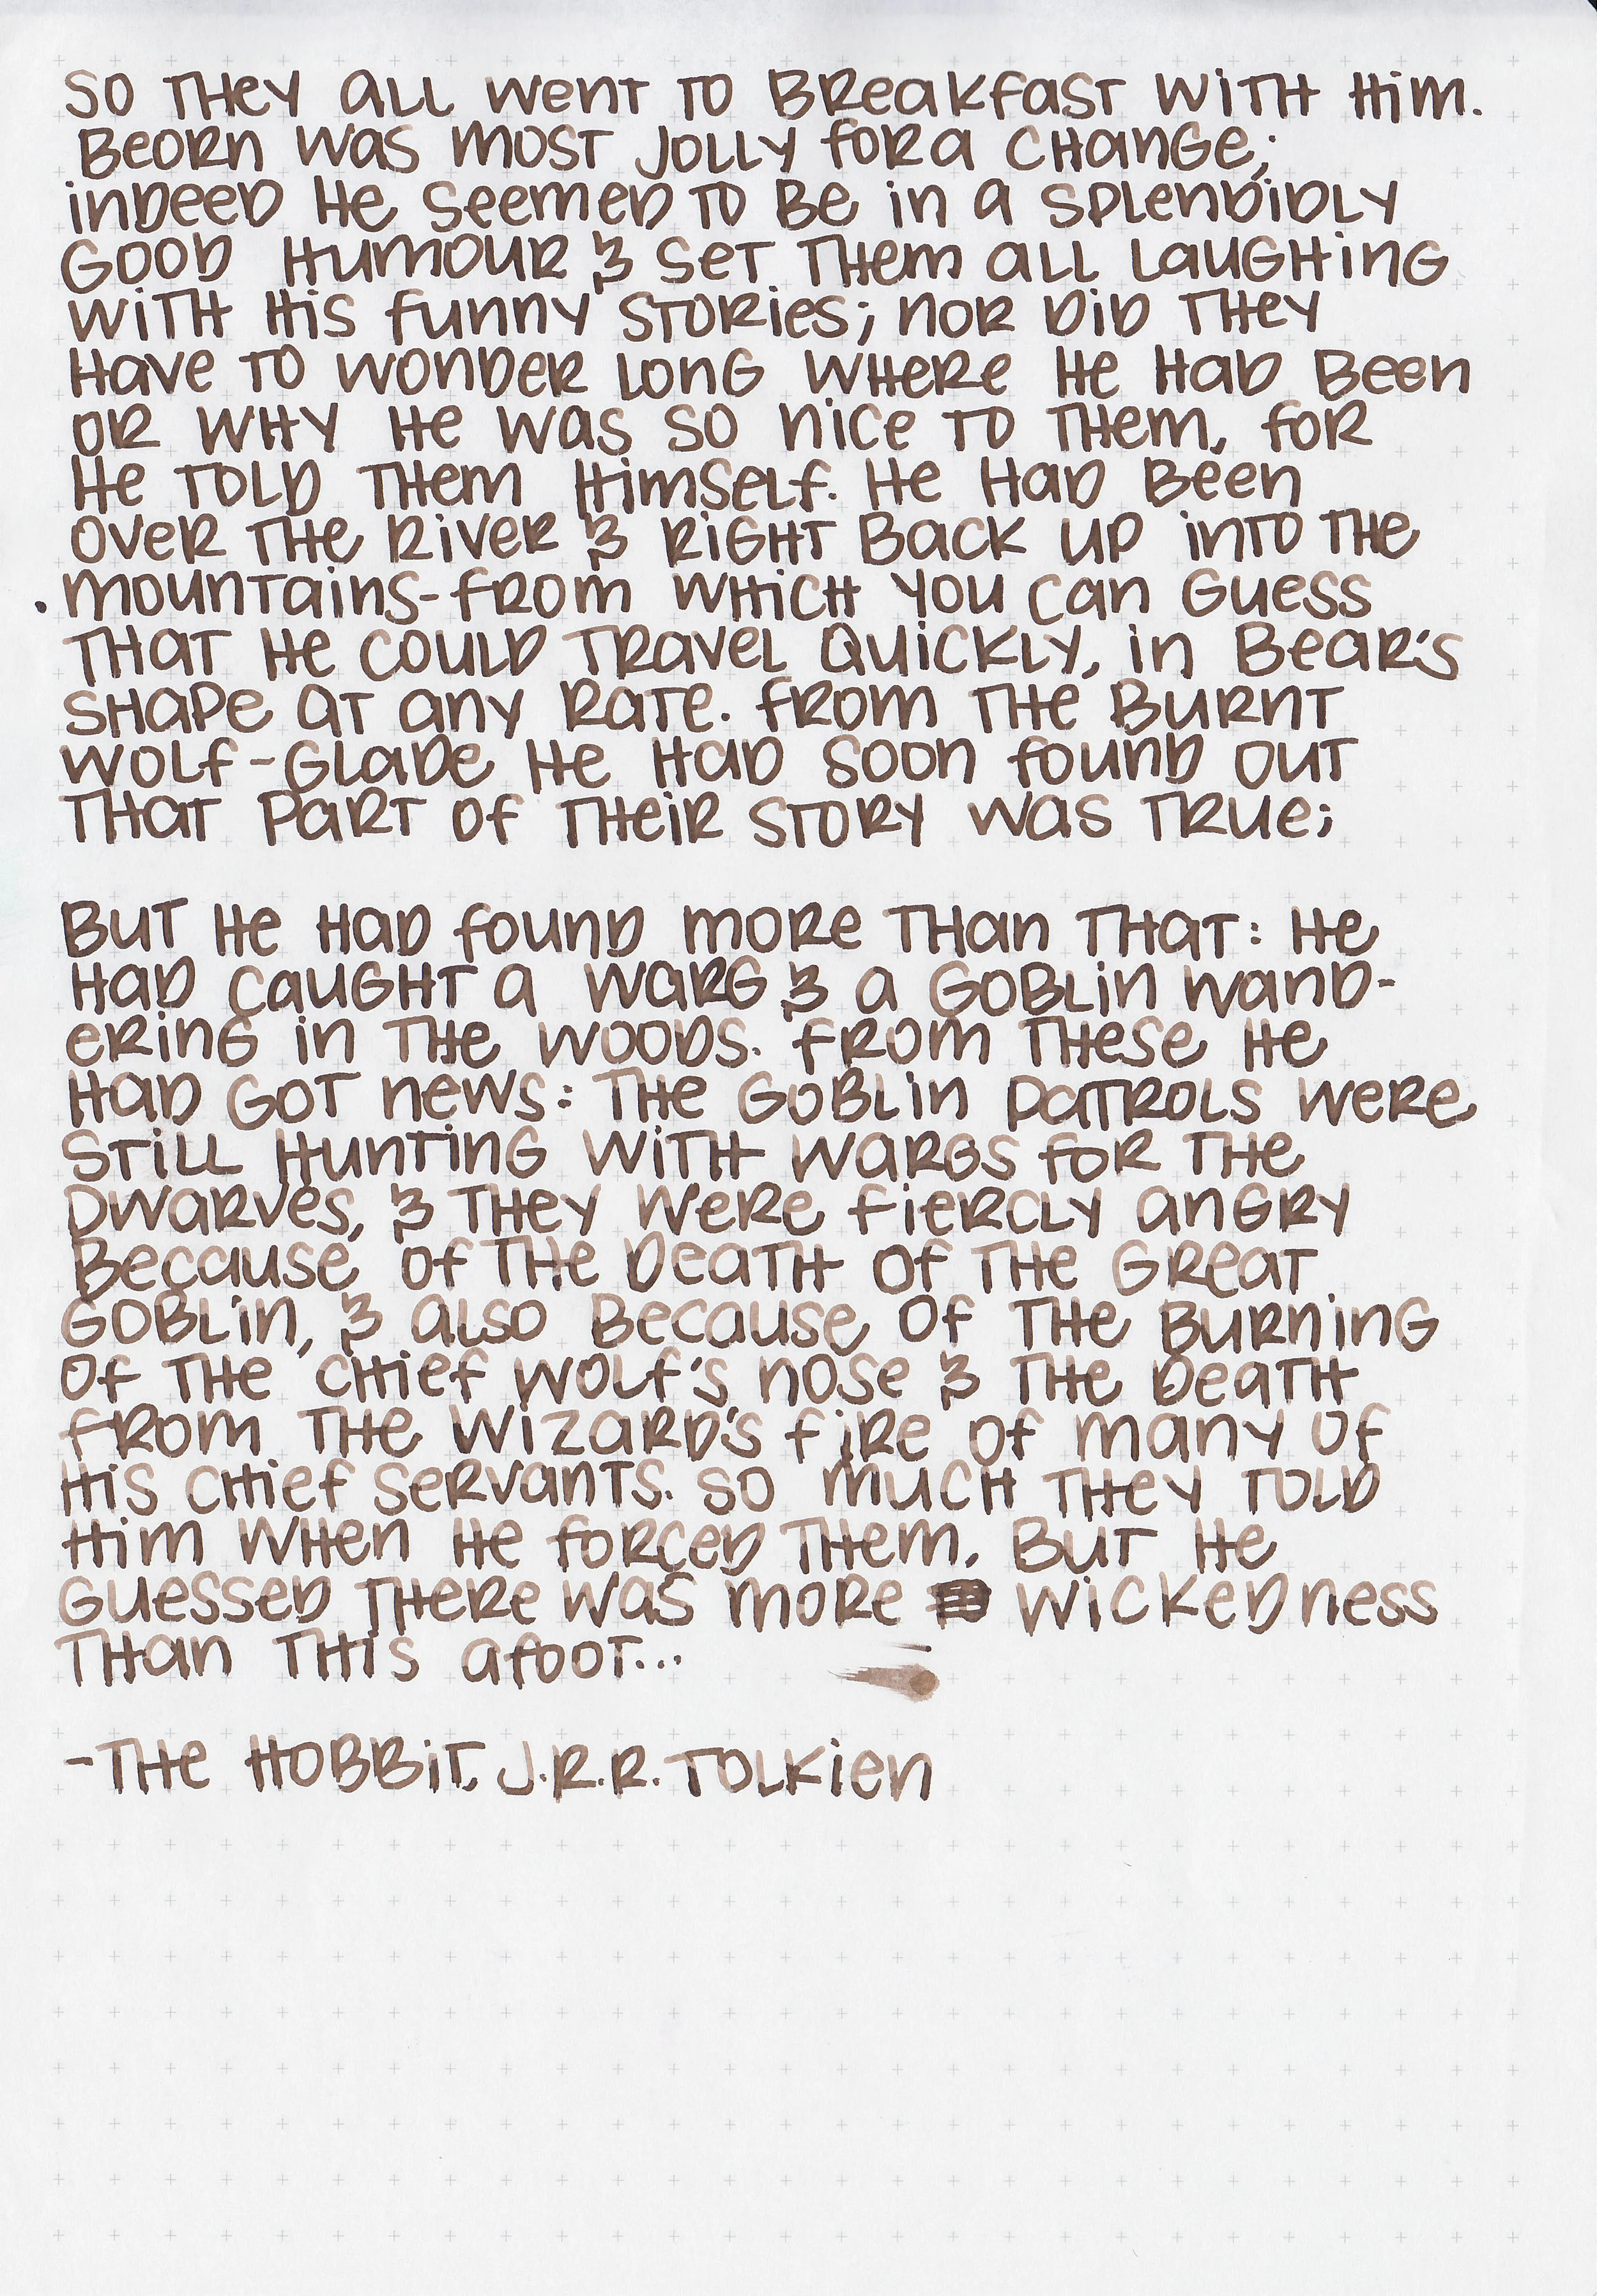 So they all went to breakfast with him.
Beorn was most jolly for a change;
indeed he seemed to be in a splendidly
good humour & set them all laughing
with his funny stories; nor did they
have to wonder long where he had been
or why he was so nice to them, for
he told them himself. He had been
over the river & right back up into the
mountains-from which you can guess
that he could travel quickly, in bear's
shape at any rate. From the burnt
wolf-glade he had soon found out
that part of their story was true;

But he had found more than that: he
had caught a warg & a goblin wand-
ering in the woods. From these he
had got news: the goblin patrols were
still hunting with wargs for the
dwarves, & they were fiercly angry
because of the death of the Great
Goblin, & also because of the burning
of the chief wolf's nose & the death
from the wizard's fire of many of
his chief servants. So much they told
him when he forced them, but he
guessed there was more wickedness
than this afoot...

-The Hobbit, J.R.R. Tolkien